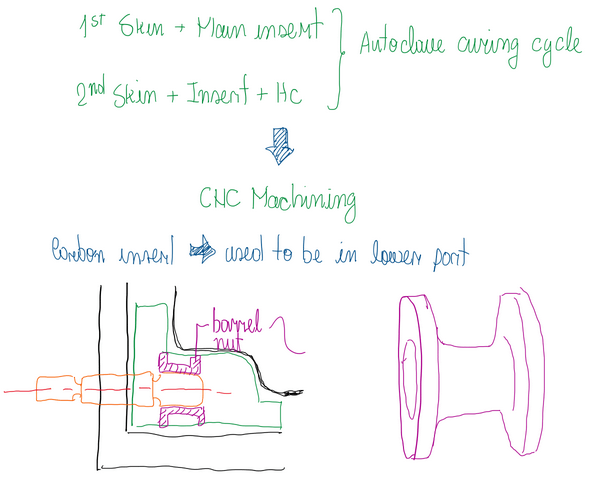 1st Skin + Main insert
Autoclave curing cycle
2nd Skin + Insert + Hc
CNC Machining
Carbon insert used to be in lower part
barrel
nut